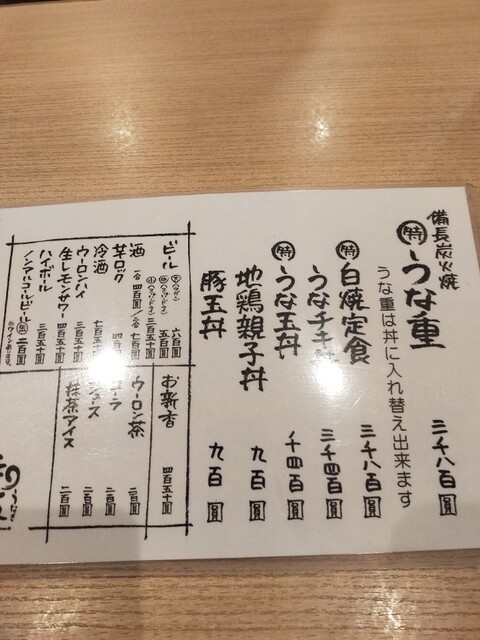 備長炭火焼
特 うな重 三千八百圓
うな重は丼に入れ替え出来ます
特 白焼定食 三千八百圓
うなチキ 三千四百圓
特 うな玉丼 千四百圓
地鶏親子丼 九百圓
豚玉丼 九百圓
ビール
六百圓
五百圓
三百五十圓
酒 一合 四百圓 二合 七百圓
芋ロック 四百圓
冷酒 七百
ウーロンハイ 三百五十圓
生レモンサワー 四百五十圓
ハイボール 三百五十圓
ノンアルコールビール 二百圓
お新香 四百五十圓
ウーロン茶 二百圓
コーラ 二百圓
ジュース 二百圓
抹茶アイス 二百圓